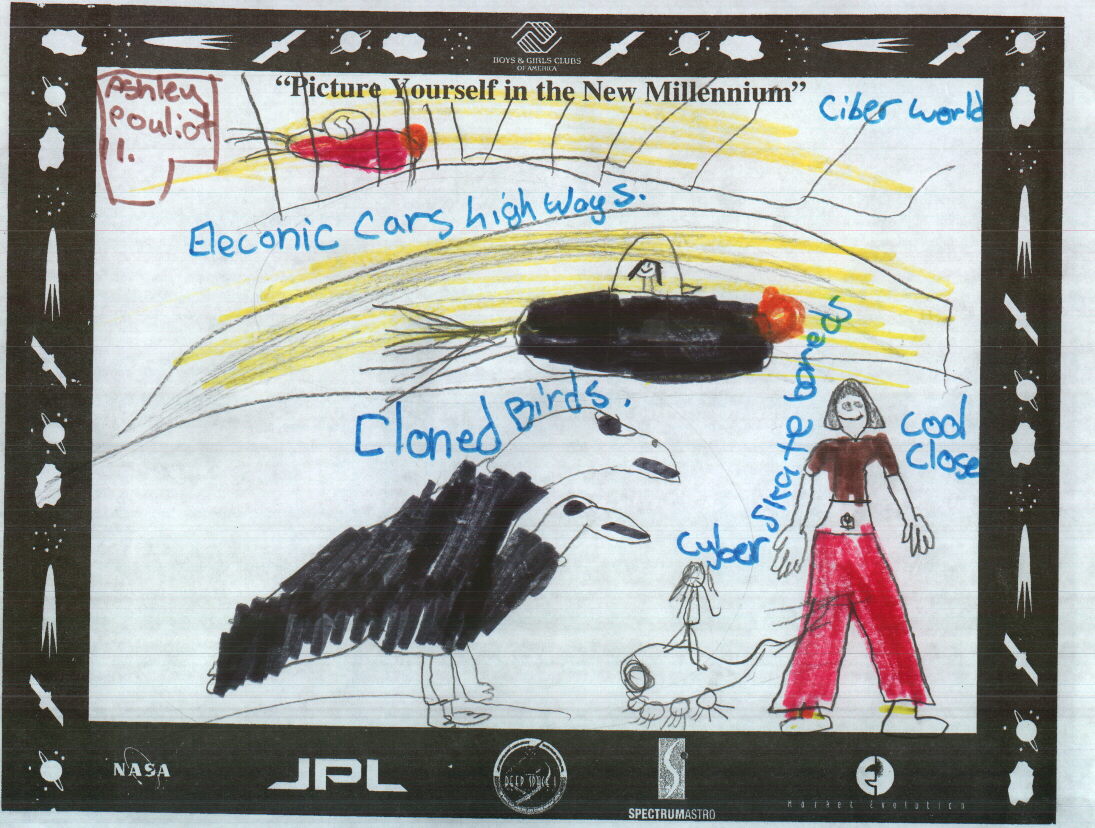 BOYS & GIRLS CLUBS
OF AMERICA
"Picture Yourself in the New Millennium"
Ashley
Pouliot
11.
Ciber world
Eleconic Cars high ways.
Cloned Birds.
Cyber Skate boreds
Cool
Close
NASA
JPL
DEEP SPACE 1
SPECTRUMASTRO
Market Evolution